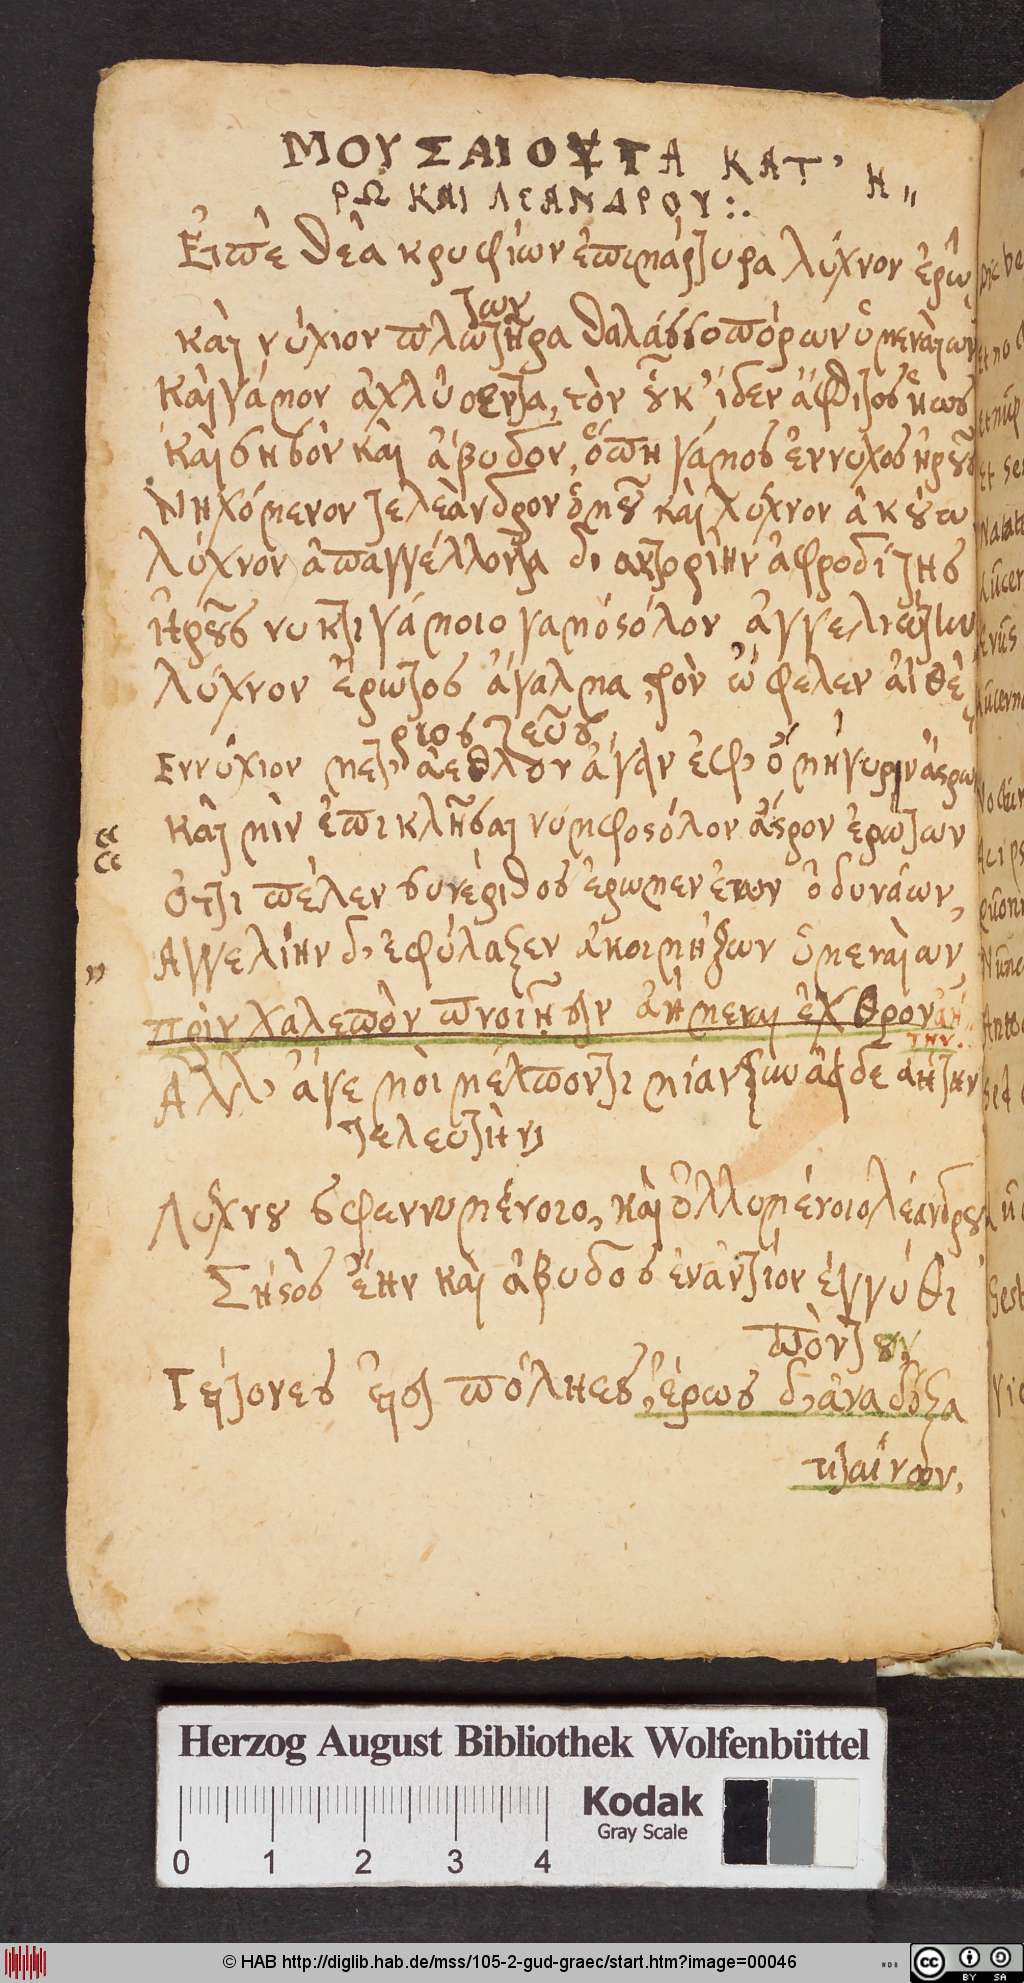 ΜΟΥΣΑΙΟΥ ΤΑ ΚΑΤ' Η
ΡΩ ΚΑΙ ΛΕΑΝΔΡΟΥ :.
Εἰπὲ θεὰ κρυφίων ἐπιμάρτυρα λύχνον ἐρώ
των
καὶ νύχιον πλωτῆρα θαλασσοπόρων ὑμεναίων
Καὶ γάμον ἀχλυόεντα, τὸν οὐκ ἴδεν ἄφθιτος ἠὼς
Καὶ σηστὸν καὶ ἄβυδον, ὅπη γάμος ἔννυχος ἡροῦς
Νηχόμενον τε λεάνδρον ὁμοῦ καὶ λύχνον ἀκούω
λύχνον ἀπαγγέλλοντα διακτορίην ἀφροδίτης
ἡροῦς νυκτιγάμοιο γαμοστόλον ἀγγελιώτην
λύχνον ἔρωτος ἄγαλμα, τὸν ὤφελεν αἰθέ
ριος ζεὺς,
Εννύχιον μετ' ἄεθλον ἄγειν ἐς ὁμήγυριν ἄστρων
“ καὶ μὶν ἐπικλῆσαι νυμφοστόλον ἄστρον ἐρώτων
Ὅττι πέλεν συνέριθος ἐρωμενέων ὀδυνάων,
„ Αγγελίην δ' ἐφύλαξεν ἀκοιμήτων ὑμεναίων
πρὶν χαλεπὸν πνοιῇσιν ἀήμεναι ἐχθρὸν ἀή
την.
Αλλ' ἄγε μοὶ μέλποντι μίαν
τελευτὴν
Λύχνου σβεννυμένοιο, καὶ ὀλλυμένοιο λεάνδρου
Σηστὸς ἔην καὶ ἄβυδος ἐναντίον ἐγγύθι
πόντου,
Γείτονες εἰσὶ πόληες, ἔρως δ' ἀνὰ τόξα
τιταίνων,
Herzog August Bibliothek Wolfenbüttel
0 1 2 3 4
Kodak
Gray Scale
© HAB http://diglib.hab.de/mss/105-2-gud-graec/start.htm?image=00046
CC BY SA